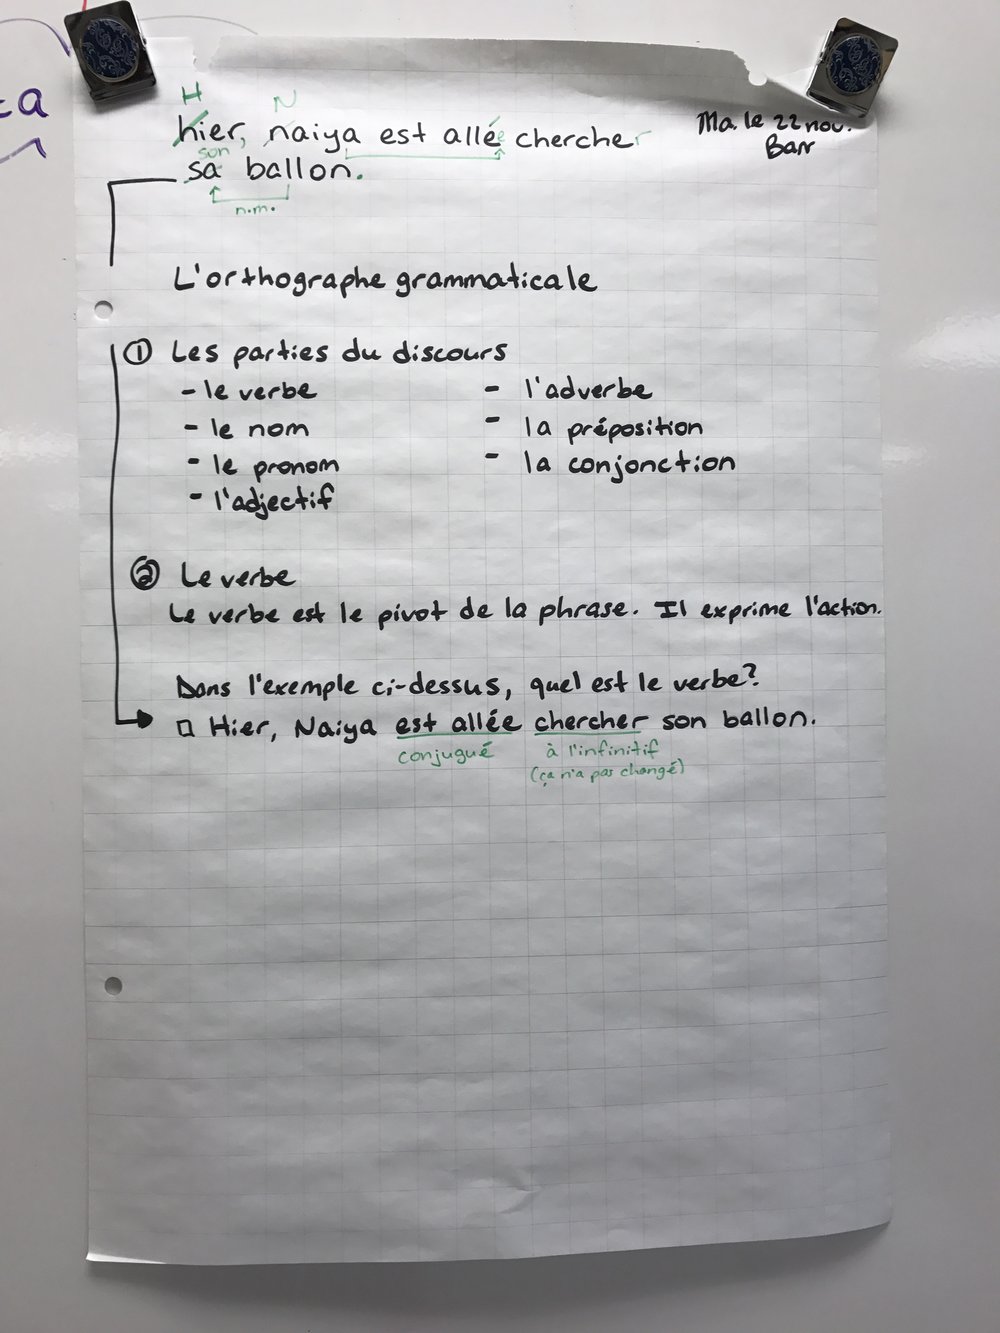 ta
H N
hier, naiya est allée chercher
Ma. le 22 nov.
Barr
son
sa ballon.
n.m.
L'orthographe grammaticale
① Les parties du discours
- le verbe - l'adverbe
- le nom - la préposition
- le pronom - la conjonction
- l'adjectif
② Le verbe
Le verbe est le pivot de la phrase. Il exprime l'action.
Dans l'exemple ci-dessus, quel est le verbe?
Hier, Naiya est allée chercher son ballon.
conjugué à l'infinitif
(ça n'a pas changé)